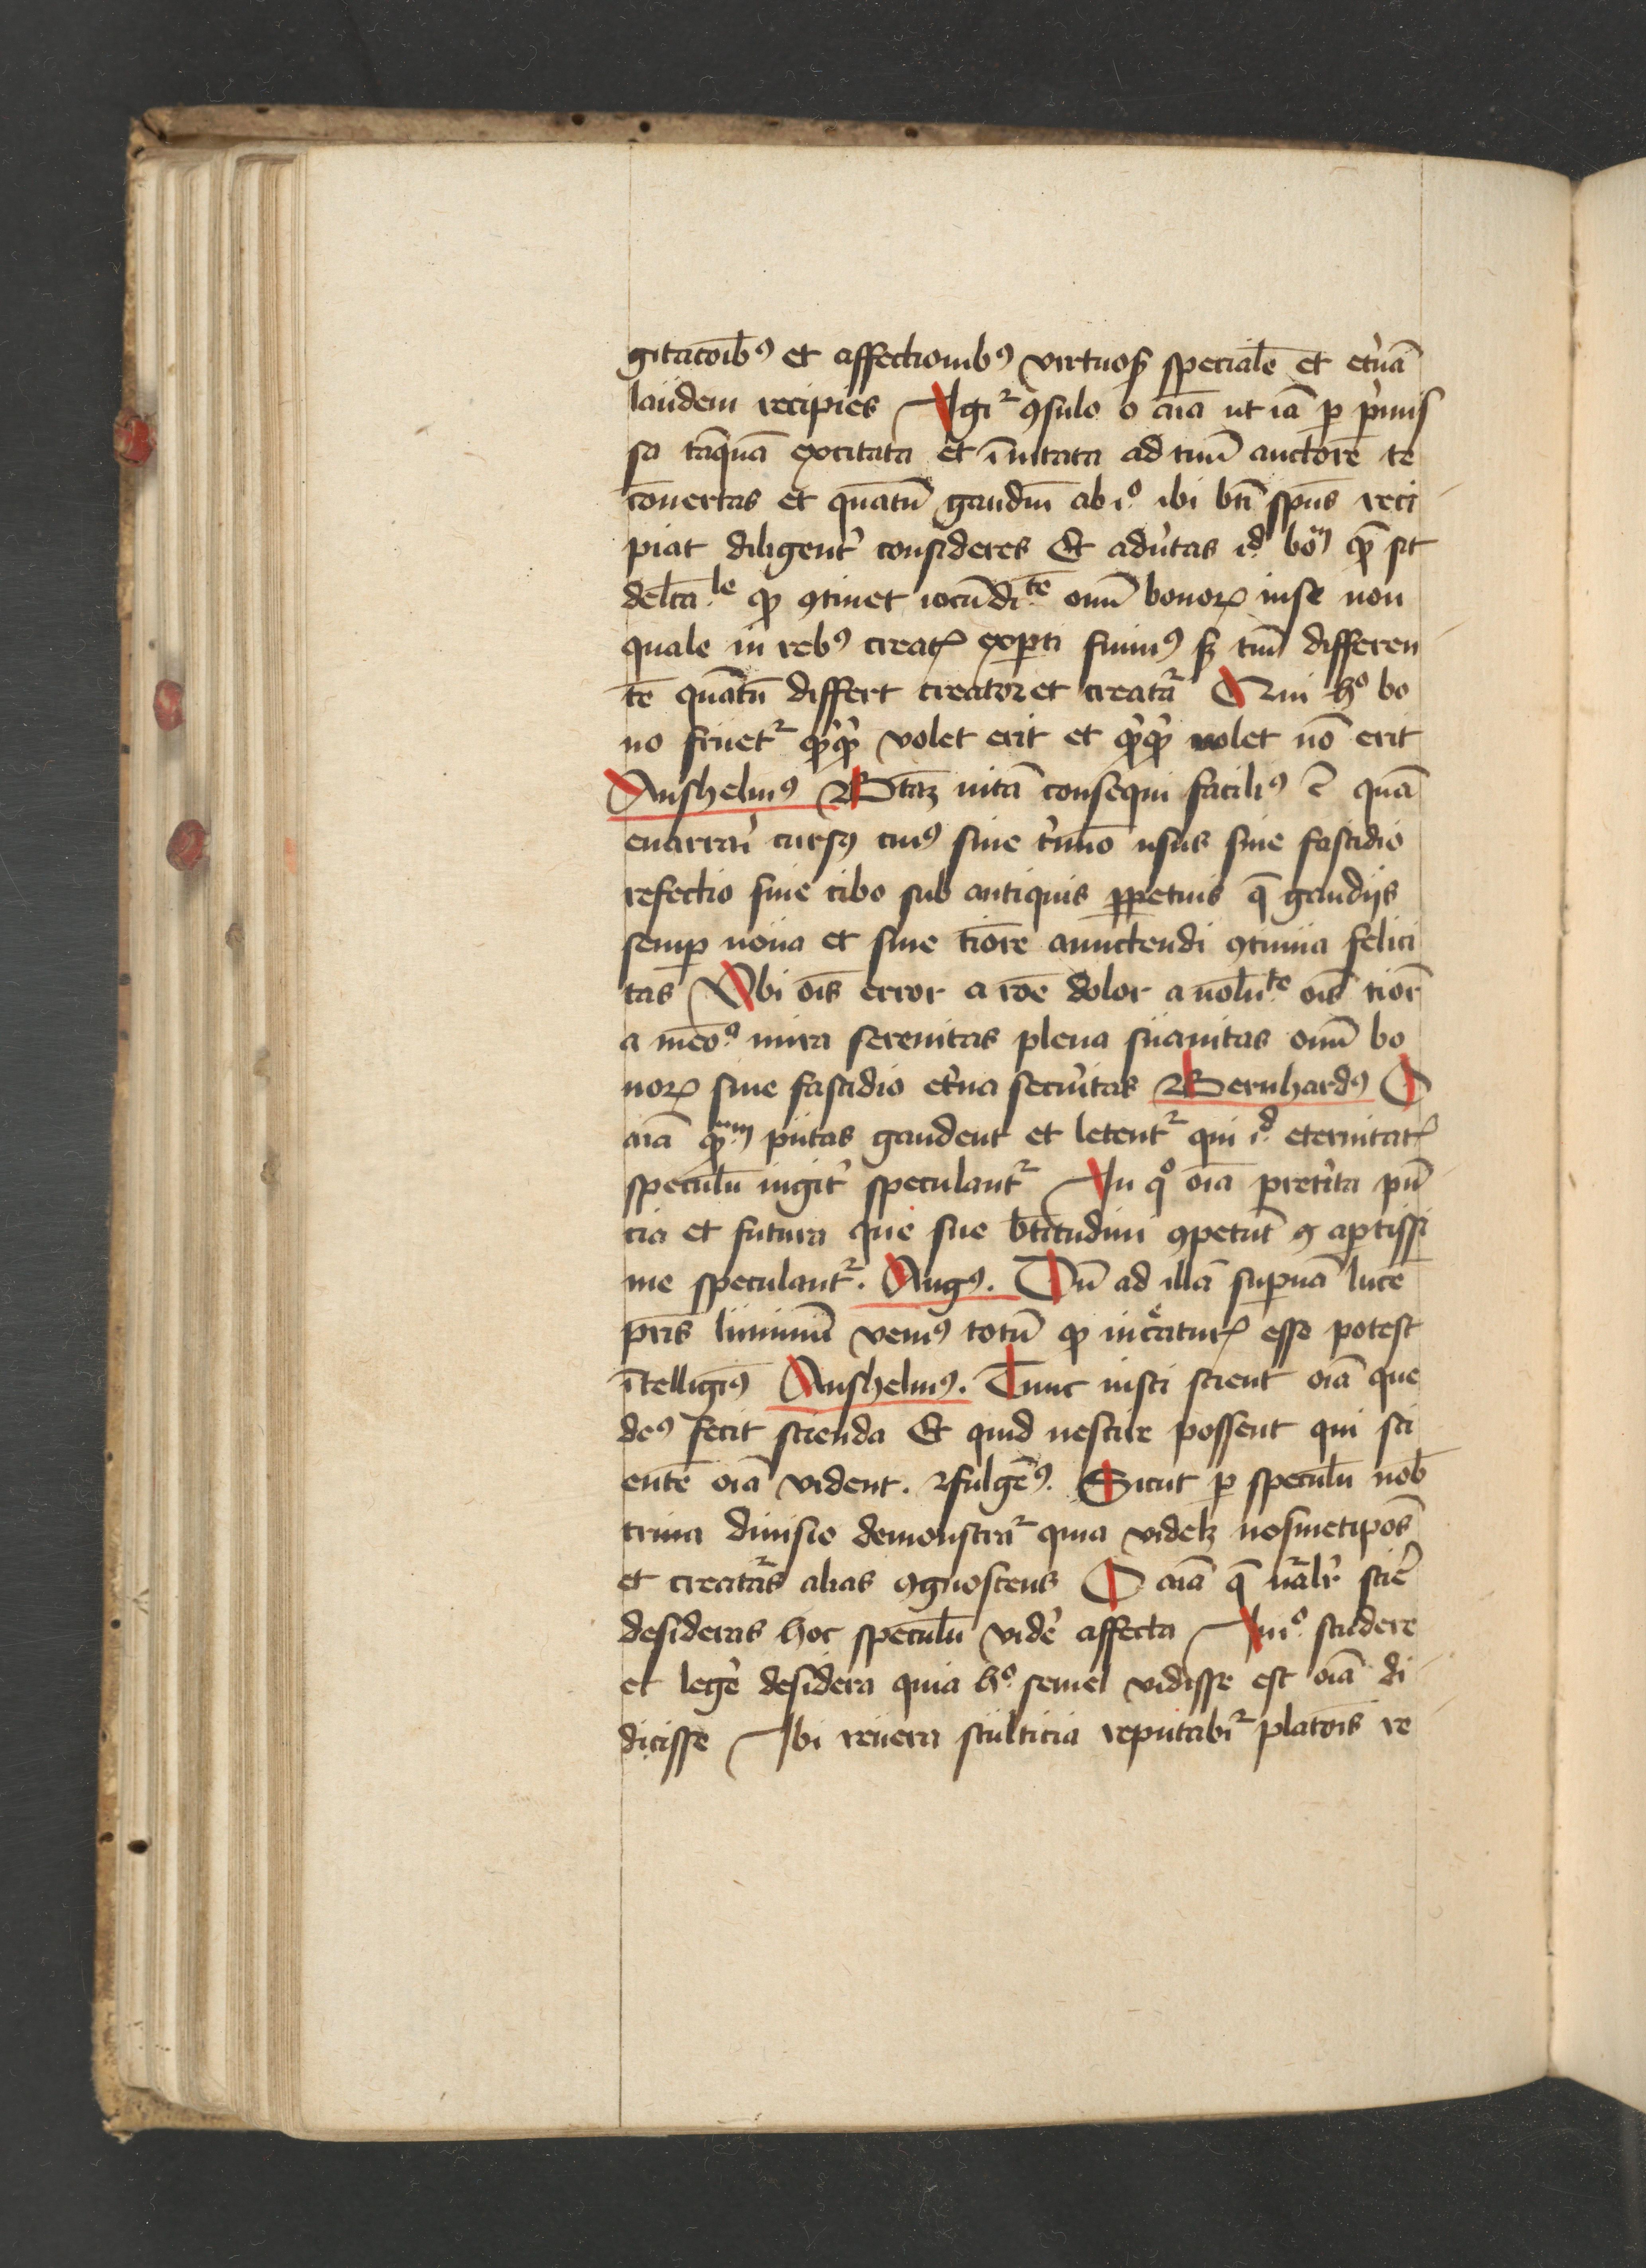 gitac̅oib⁹ et affectionib⁹ virtuos̛ speciale̅ et et̛na̅
laudem recipies Igr̛ ꝯsulo o ai̅a ut ia̅ ꝑ p̛mis
sa ta̅qua̅ excitata et i̅uitata ad tuu̅ auctore̅ te
co̅uertas et qua̅tu̅ gaudiu̅ ab i.º ibi bt̅i sp̅us reci
piat diligent̛ consideres Et adưtas i.ᵈ bo.ᵐ qꝫ̅ sit
delc̅a.ˡᵉ qꝫ ꝯtinet iocu̅di.ᵗᵉ om̅i̅ bonoꝝ in se non
quale in reb⁹ creat̛ exꝑti sum⁹ sꝫ tm̅ differen
te̅ qua̅tu̅ differt creator et creat᷑a Qui hº bo
no fruet᷑ q̛cq̛d volet erit et q̛cq̛d nolet no̅ erit
Anshelm⁹ Bt̅aꝫ uita̅ consequi facili⁹ e̅ qua̅
enarrar̛ curs⁹ cui⁹ sine t̛mi̅o usus sine fastidio
refectio sine cibo sub antiquis ꝑpetuis qꝫ gaudijs
semꝑ noua et sine ti̅ore amictendi ꝯtinua felici
tas Vbi o̅is error a ro̅e dolor a uolu̅.ᵗᵉ o̅is ti̅or
a me̅o.ª mira serenitas plena suauitas om̅i̅ bo
noꝝ sine fastidio et̛na secưitas Bernhard⁹ O
ai̅a q̅.ᵐ putas gaudent et letent᷑ qui i.ᵈ eternitat̛
speculu̅ iugit̛ speculant᷑ In qº oi̅a p̅ret̛ita pn̅
cia et futura que sue bt̅itudini ꝯpetu̅t ꝯ aptissi
me speculant᷑. Aug⁹. Du̅ ad illa̅ suꝑna̅ luce̅
pr̅is luminu̅ venim⁹ totu̅ qꝫ in c̛atur̛ esse potest
i̅telligim⁹ Anshelm⁹. Tunc iusti scient oi̅a que
de⁹ fecit scienda Et quid nescire possent qui sci
ente̅ oi̅a vident. ffulge̅⁹. Sicut ꝑ speculu̅ nob̅
trina diuisio demonstrat᷑ quia videlꝫ nosmetip̅os
et creat᷑as alias ꝯgnoscens O ai̅a q̅ nr̅alr̛ sci̛e
desideras hoc speculu̅ vid̛e affecta In.º studere
et leg̛e desidera quia h.º semel vidisse est oi̅a di
dicisse Ibi reuera stulticia reputabi᷑ plato̅is re